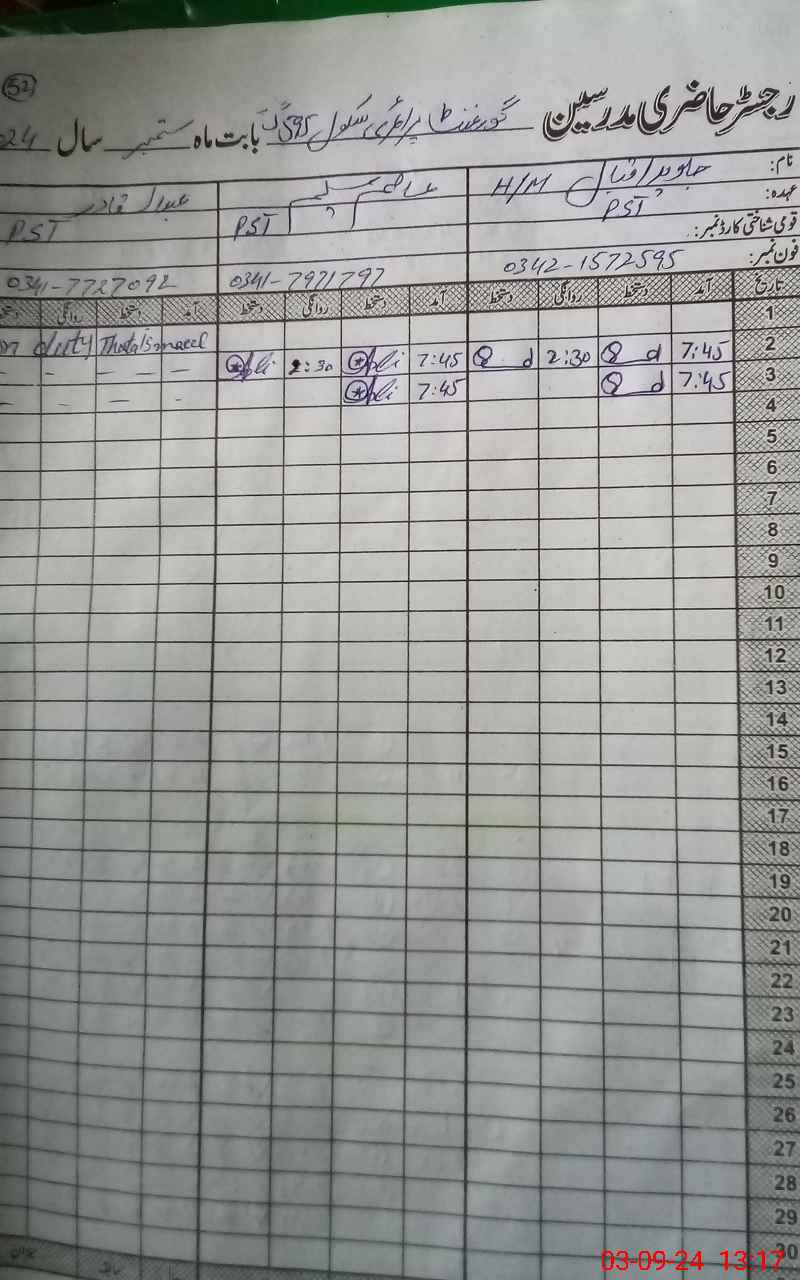 52
رجسٹر حاضری مدرسین گورنمنٹ پرائمری سکول 595 گ ب بابت ماہ ستمبر سال 024
نام: جاوید اقبال H/M عاصم سلیم عبدالقادر
عہدہ: PST PST PST
قومی شناختی کارڈ نمبر:
فون نمبر: 0342-1572595 0341-7971797 0341-7727092
تاریخ آمد دستخط روانگی دستخط آمد دستخط روانگی دستخط آمد دستخط روانگی دستخط
1
2 7:45 2:30 7:45 2:30 on duty
3 7:45 7:45
4
5
6
7
8
9
10
11
12
13
14
15
16
17
18
19
20
21
22
23
24
25
26
27
28
29
30
03-09-24 13:17